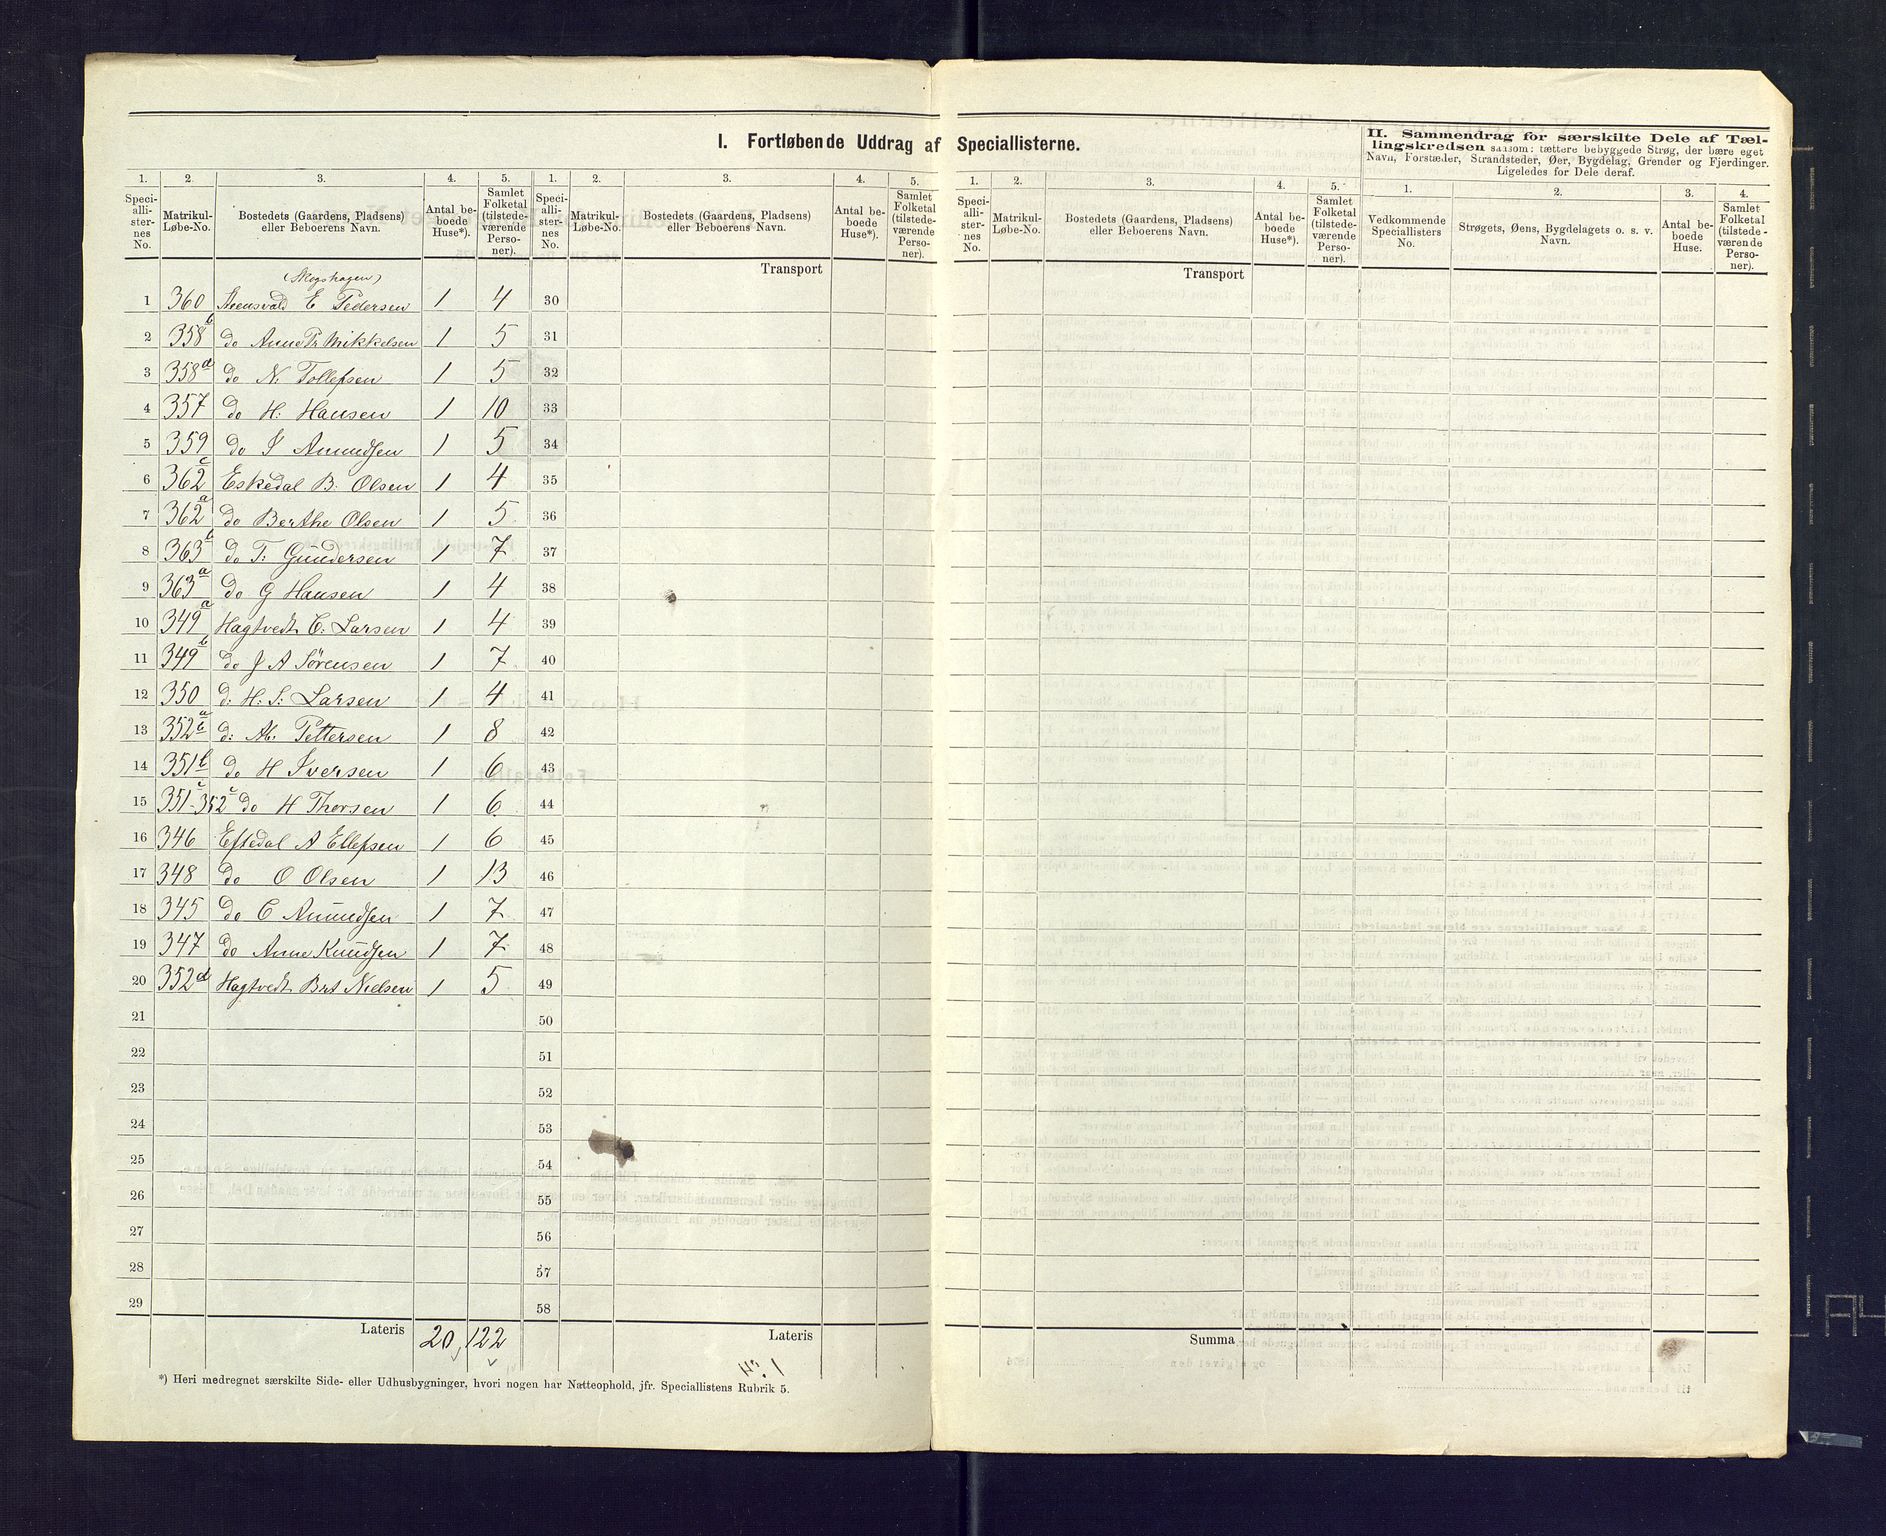 I. Fortløbende Uddrag af Speciallisterne.
II. Sammendrag for særskilte Dele af Tællingskredsen saasom: tættere bebyggede Strøg, der bære eget Navn, Forstæder, Strandsteder, Øer, Bygdelag, Grender og Fjerdinger. Ligeledes for Dele deraf.
1. 2. 3. 4. 5. 1. 2. 3. 4. 5. 1. 2. 3. 4. 5. 1. 2. 3. 4.
Speciallisternes No. Matrikul-Løbe-No. Bostedets (Gaardens, Pladsens) eller Beboerens Navn. Antal beboede Huse*). Samlet Folketal (tilstedeværende Personer).
Speciallisternes No. Matrikul-Løbe-No. Bostedets (Gaardens, Pladsens) eller Beboerens Navn. Antal beboede Huse*). Samlet Folketal (tilstedeværende Personer).
Speciallisternes No. Matrikul-Løbe-No. Bostedets (Gaardens, Pladsens) eller Beboerens Navn. Antal beboede Huse*). Samlet Folketal (tilstedeværende Personer).
Vedkommende Speciallisters No. Strøgets, Øens, Bygdelagets o. s. v. Navn. Antal beboede Huse. Samlet Folketal (tilstedeværende Personer).
(Skogshagen) Transport Transport
1 360 E Pedersen 1 4 30
2 358 b do Anne Pr Mikkelsen 1 5 31
3 358 d do N. Tollefsen 1 5 32
4 357 do H. Hansen 1 10 33
5 359 do S Amundsen 1 5 34
6 362 c Eskedal B. Olsen 1 4 35
7 362 a do Berthe Olsen 1 5 36
8 363 b do T. Gundersen 1 7 37
9 363 a do G Hansen 1 4 38
10 349 a Hagtvedt C: Larsen 1 4 39
11 349 b do J A Sörensen 1 7 40
12 350 d: H. S: Larsen 1 4 41
13 352 a d: Ab. Pettersen 1 8 42
14 351 b do H Iversen 1 6 43
15 351 c - 352 c do H Thorsen 1 6 44
16 346 Eftedal A Ellefsen 1 6 45
17 348 do O Olsen 1 13 46
18 345 do C Amundsen 1 7 47
19 347 do Anne Knudsen 1 7 48
20 352 d Hagtvedt Brt Nielsen 1 5 49
21 50
22 51
23 52
24 53
25 54
26 55
27 56
28 57
29 58
Lateris 20 122 Lateris Summa
No. 1
*) Heri medregnet særskilte Side- eller Udhusbygninger, hvori nogen har Natteophold, jfr. Speciallistens Rubrik 5.